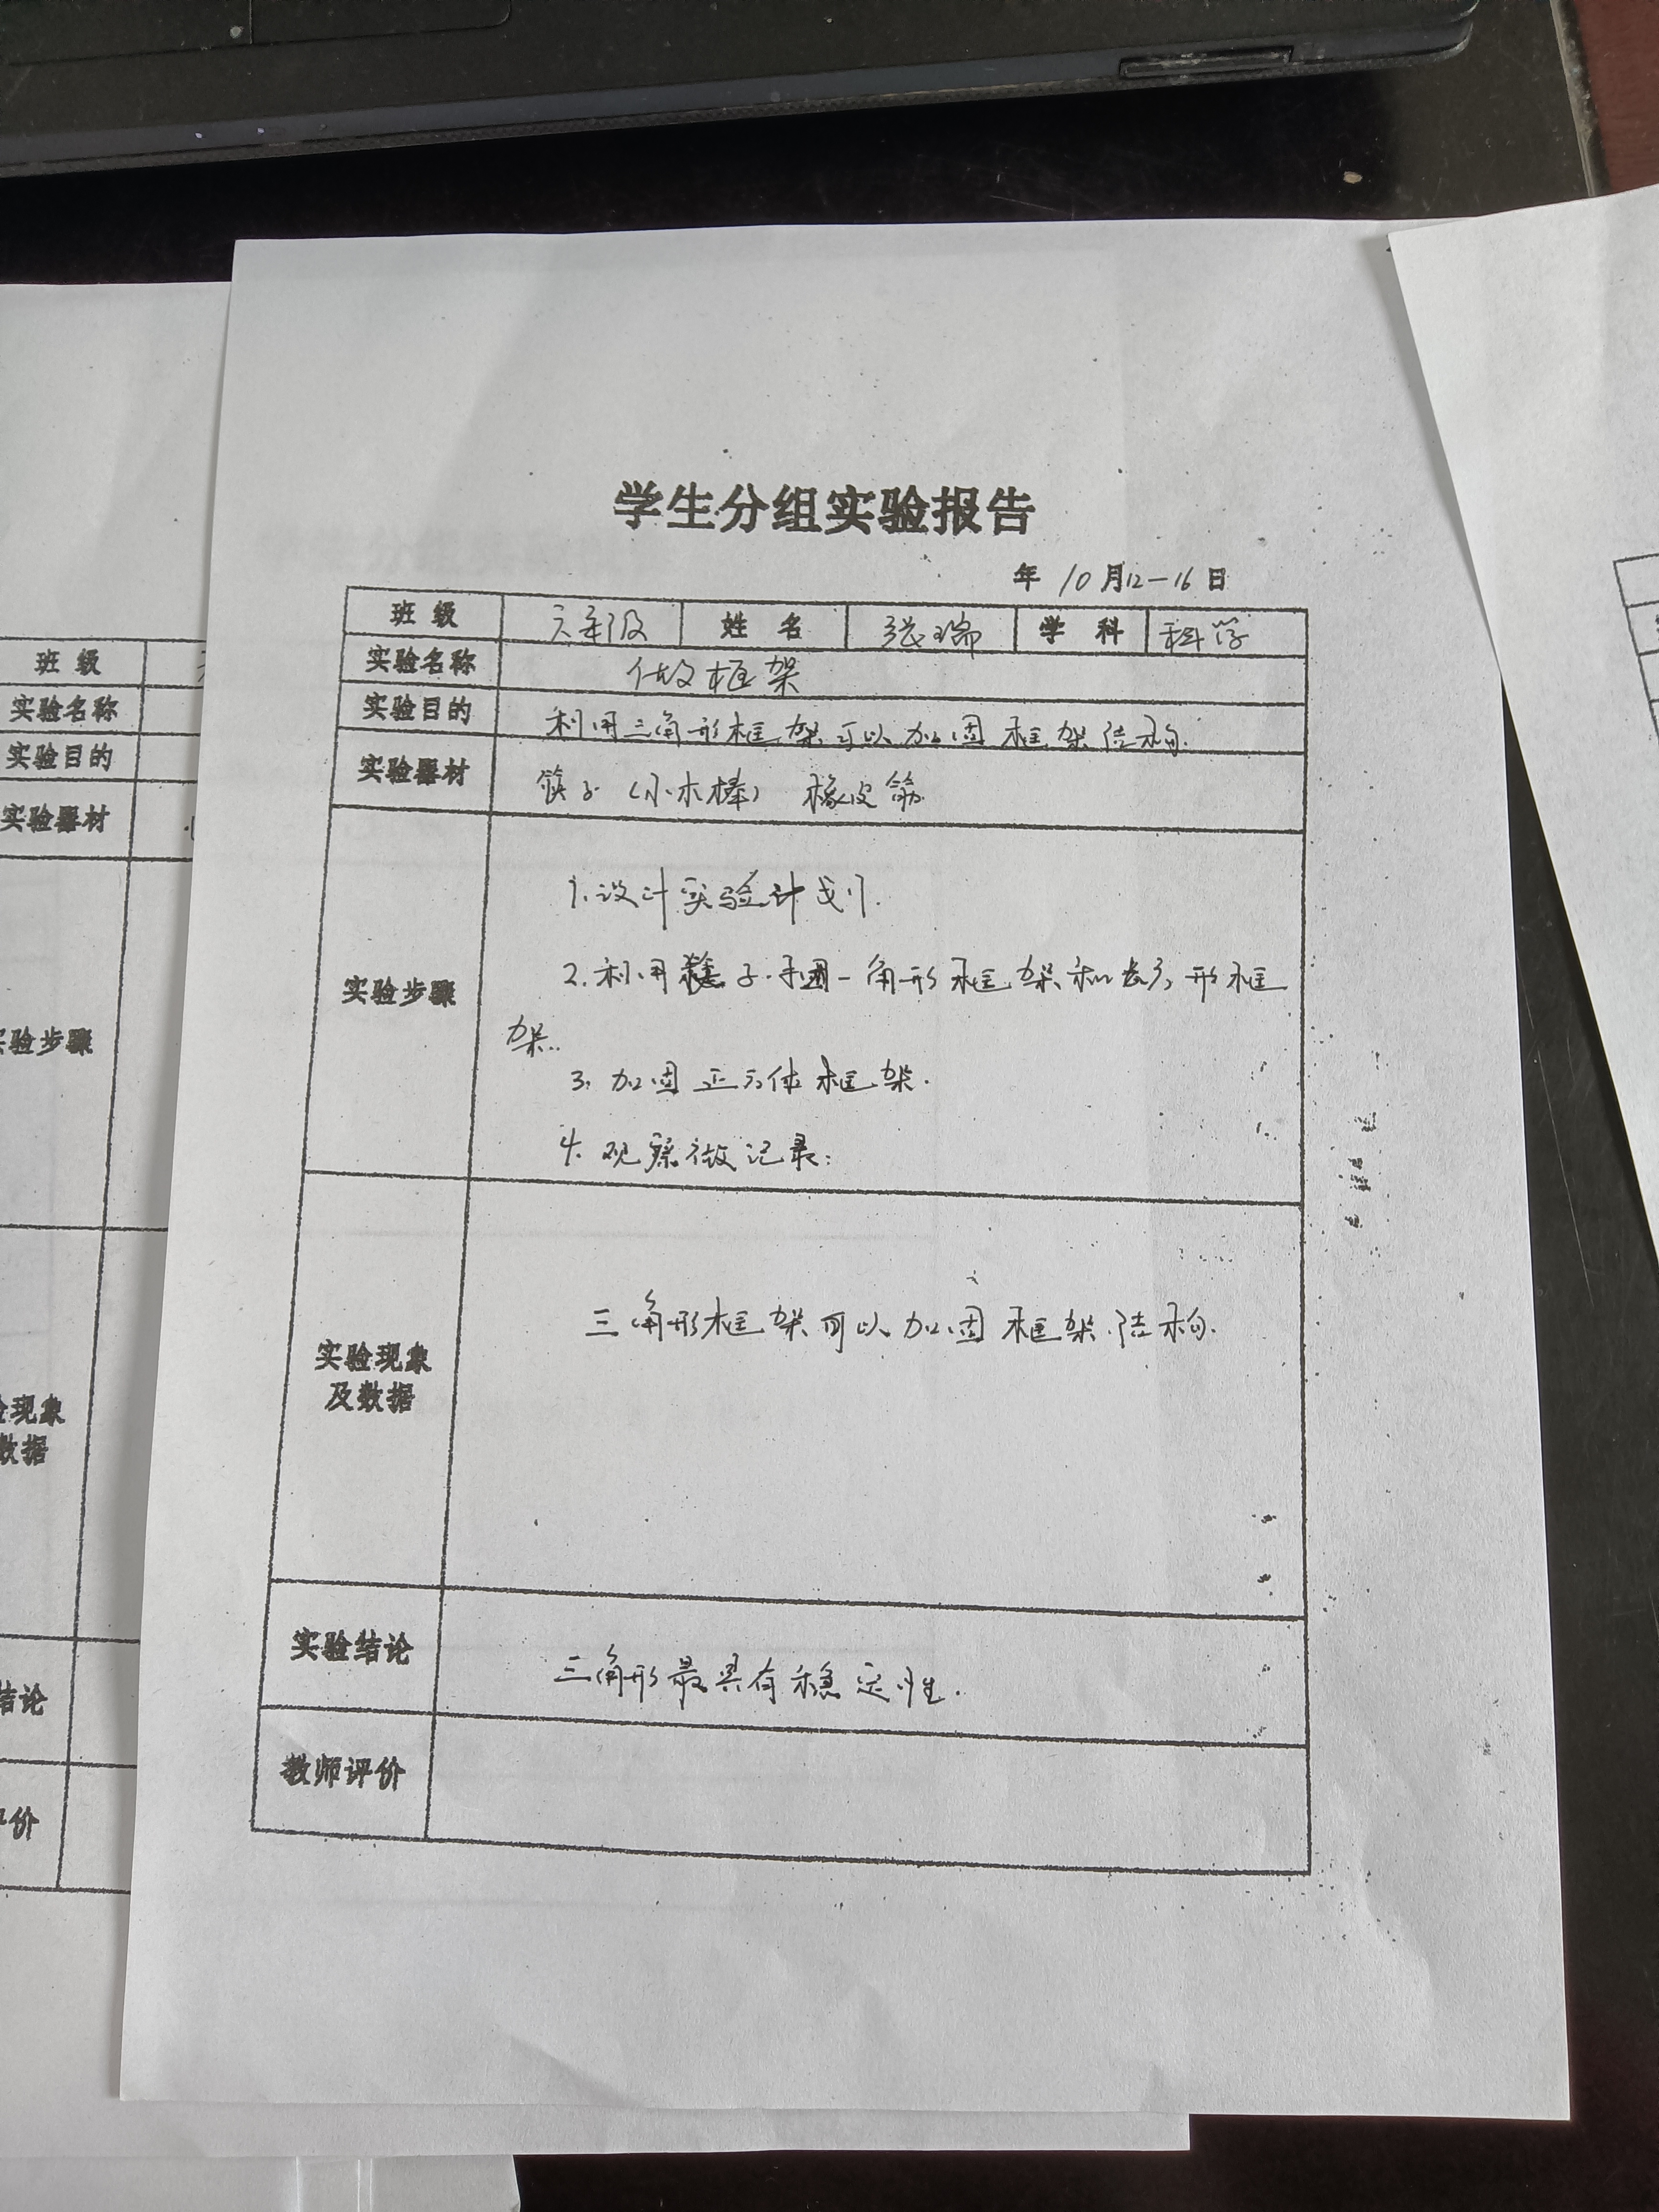 学生分组实验报告
年 10月12—16日
班级 六年级 姓名 张瑞 学科 科学
实验名称 做框架
实验目的 利用三角形框架可以加固框架结构.
实验器材 筷子(小木棒) 橡皮筋
实验步骤
1.设计实验计划.
2.利用 子 角形框架和 形框
架..
3.加固正方体框架.
4.观察做记录:
实验现象
及数据
三角形框架可以加固框架结构.
实验结论 三角形最具有稳定性.
教师评价
班级
实验名称
实验目的
实验器材
验步骤
现象
数据
结论
价